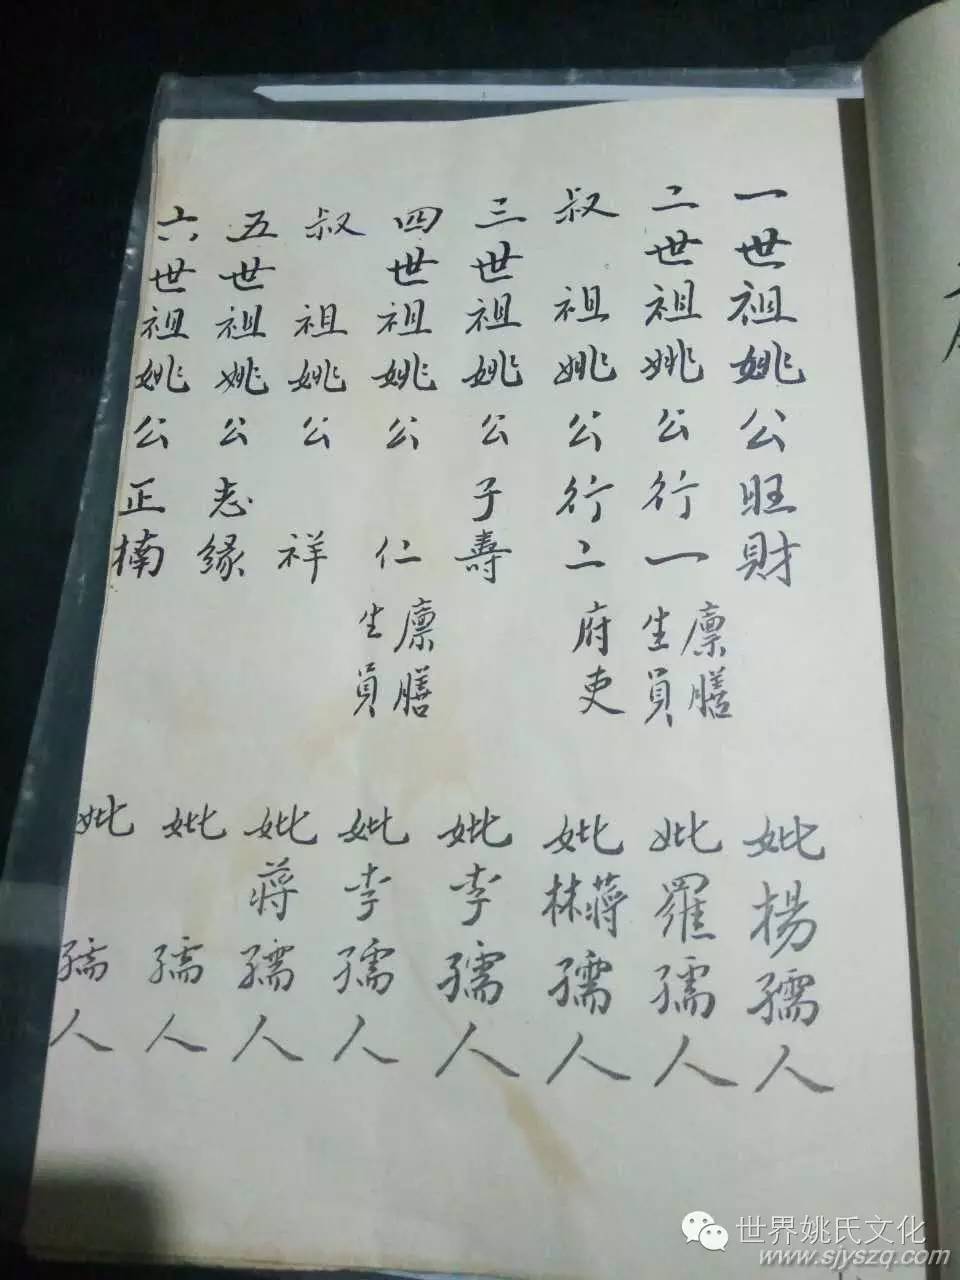 一世祖姚公旺財 妣楊孺人
二世祖姚公行一 廪膳生員 妣羅孺人
叔祖姚公行二 府吏 妣蔣林孺人
三世祖姚公子壽 妣李孺人
四世祖姚公仁 廪膳生員 妣李孺人
叔祖姚公祥 妣蔣孺人
五世祖姚公志緣 妣孺人
六世祖姚公正楠 妣孺人
世界姚氏文化
www.sjyszq.com